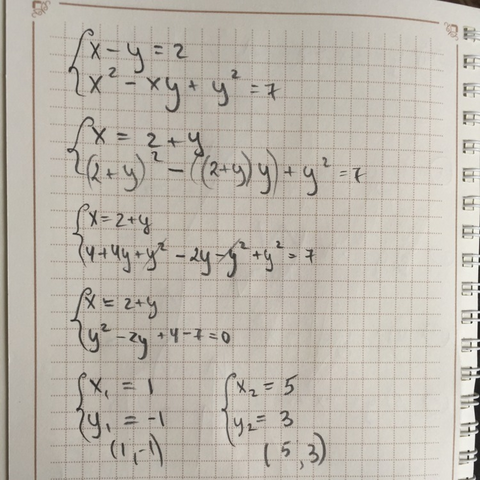 x - y = 2
x² - xy + y² = 7
x = 2 + y
(2+y)² - ((2+y)y) + y² = 7
x = 2+y
4+4y+y² - 2y - y² + y² = 7
x = 2+y
y² - 2y + 4 - 7 = 0
x₁ = 1 x₂ = 5
y₁ = -1 y₂ = 3
(1,-1) (5,3)